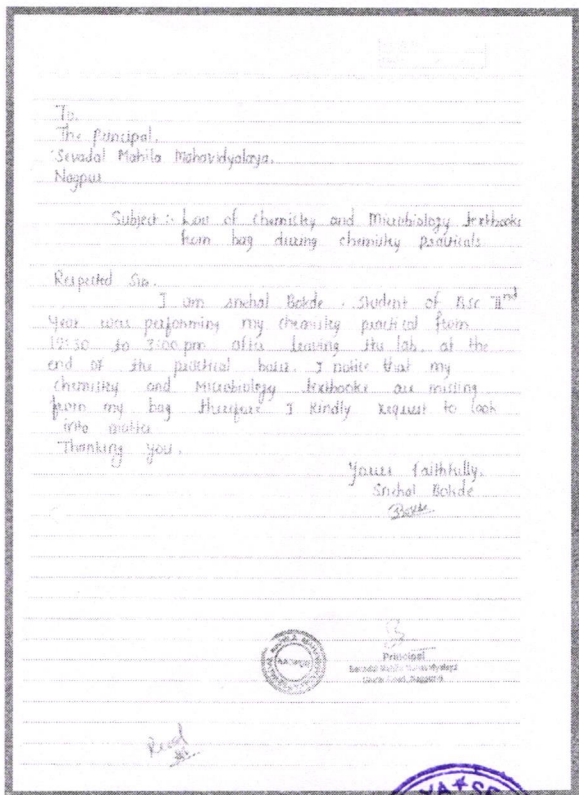 To,
The Principal,
Sevadal Mahila Mahavidyalaya,
Nagpur
Subject :- Loss of Chemistry and Microbiology textbooks
from bag during chemistry practicals
Respected Sir,
I am Snehal Bokde. Student of BSc IInd
Year was performing my chemistry practical from
12:30 to 3:00 pm after leaving the lab, at the
end of the practical hour. I notice that my
chemistry and Microbiology textbooks are missing
from my bag therefore I kindly request to look
into matter
Thanking you.
Yours faithfully,
Snehal Bokde
Bokde
Principal
Sevadal Mahila Mahavidyalaya
Nagpur-9
NAGPUR
Read
YA★SE